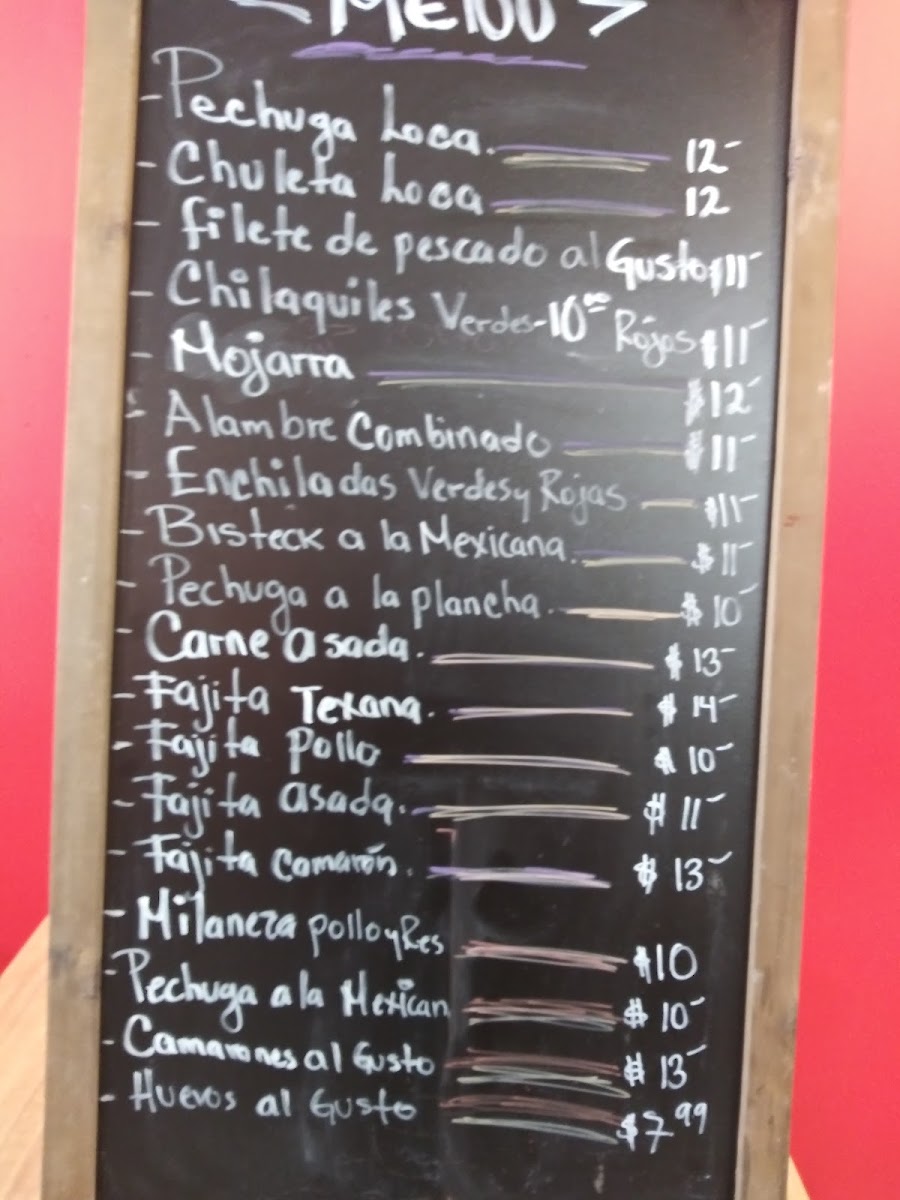 < MENU >
- Pechuga Loca. 12-
- Chuleta Loca 12
- filete de pescado al Gusto $11-
- Chilaquiles Verdes-10.00 Rojas $11-
- Mojarra $12-
- Alambre Combinado $11-
- Enchiladas Verdes y Rojas $11-
- Bisteck a la Mexicana. $11-
- Pechuga a la plancha. $10-
- Carne asada. $13-
- Fajita Texana. $14-
- Fajita Pollo $10-
- Fajita asada. $11-
- Fajita Camarón. $13-
- Milaneza pollo y Res $10
- Pechuga a la Mexican $10-
- Camarones al Gusto $13-
- Huevos al Gusto $7.99